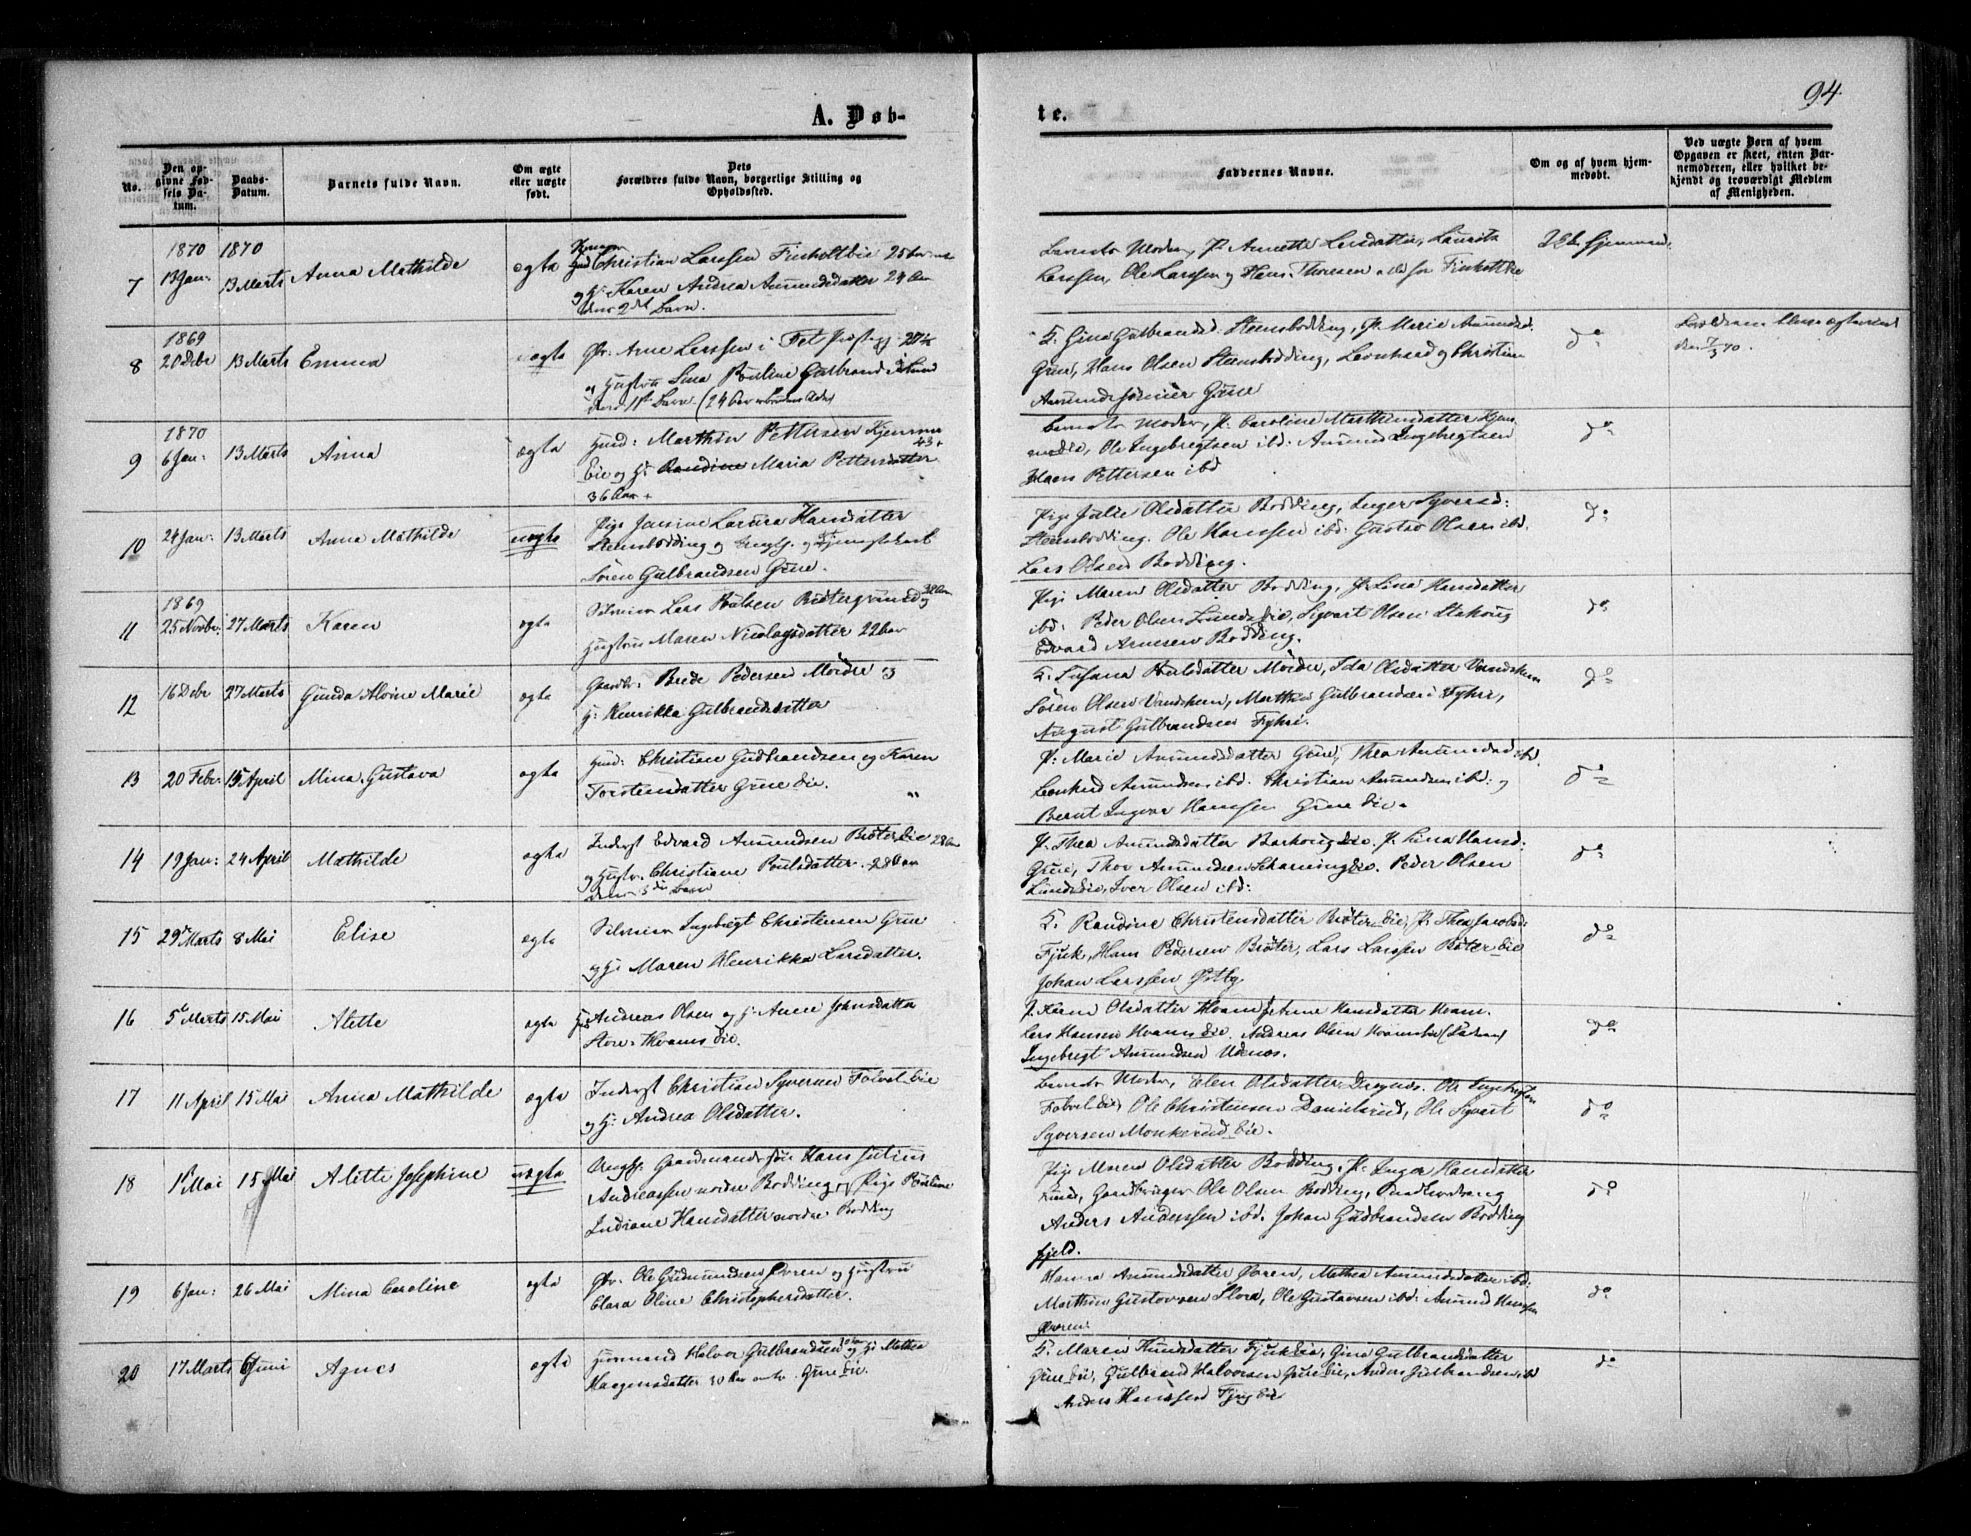 94
A. Døb-
te.
No.
Den op-
givne Fød-
sels Da-
tum.
Daabs-
Datum.
Barnets fulde Navn.
Om ægte
eller uægte
født.
Dets
Forældres fulde Navn, borgerlige Stilling og
Opholdssted.
Faddernes Navne.
Om og af hvem hjem-
medøbt.
Ved uægte Børn af hvem
Opgaven er skeet, enten Bar-
nemoderen, eller hvilket be-
kjendt og troværdigt Medlem
af Menigheden.
1870 1870
7 13 Jan: 13 Marts Anna Mathilde ægte
Christian Larssen Finholtbie 25
og H: Karen Andrea Amundsdatter 24 Aar
Barnets Moder, P. Annette Larsdatter, Lauritz
Larssen, Ole Larssen og Hans Thoresen
1869
8 20 Debr 13 Marts Emma ægte
Arne Larssen i Fet
og Hustru Lina Pouline Gulbrand
F. Gina Gulbrandsd. Steensbødding, P. Marie Amundsd.
Grue, Hans Olsen Steensbødding, Leonhard og Christian
Amundssønner Grue
do
1870
9 6 Jan: 13 Marts Anna ægte
Husd: Marthin Pettersen Hjemme
43
Eie og H: Randine Maria Pettersdatter
36 Aar
Barnets Moder, P. Caroline Marthinsdatter
Ole Ingebregtsen ibd: Amund Ingebregtsen
Hans Pettersen ibd
do
10 24 Jan: 13 Marts Anna Mathilde uægte
Pige Janine Laura Hansdatter
Steensbødding og Ungk.
Søren Gulbrandsen Grue.
Pige Julie Olsdatter Bødding, Inger Syversd:
Steensbødding. Ole Hanssen ibd: Gustav Olsen ibd.
Lars Olsen Bodding.
do
1869
11 25 Novbr: 27 Marts Karen ægte
Lars Poulsen
Hustru Maren Nicolaysdatter 22 Aar
Pige Maren Olsdatter Bodding, P. Lina Hansdatter
ibd: Peder Olsen Lundseie, Sigvart Olsen
Edvard Arnesen Bodding.
do
12 16 Debr 27 Marts Gunda Alvine Marie ægte
Gaardb: Brede Pedersen Moidre og
H: Henrikka Gulbrandsdatter
F. Susana Poulsdatter Moidre, Ida Olsdatter
Søren Olsen Vandshem, Marthea Gulbrandsen Fyhri,
August Gulbrandsen Fyhri.
do
13 20 Febr: 15 April Mina Gustava ægte
Husd: Christian Gudbrandsen og Karen
Torstensdatter Grue Eie. "
P: Marie Amundsdatter Grue, Thea Amundsd. ibd.
Leonhard Amundsen ibd. Christian Amundsen ibd: og
Bernt Ingvar Hansen Grue Eie.
do
14 19 Jan: 24 April Mathilde ægte
Inderst Edvard Amundsen Brøter Eie 28 Aar
og Hustr. Christiane Poulsdatter. 28 Aar
P. Thea Amundsdatter P. Lina Hansd:
Grue, Thor Amundsen Peder Olsen
Lundseie, Iver Olsen ibd:
do
15 29 Marts 8 Mai Elise ægte
Ingebregt Christensen Grue
og H: Maren Henrikka Larsdatter.
F. Randine Christensdatter Brøter Eie, P. Thea Jacobsd:
Fjuk, Hans Pedersen Brøter, Lars Larssen Brøter Eie
Johan Larssen Østby
do
16 5 Marts 15 Mai Alette ægte
Andreas Olsen og H: Anne Johnsdatter
Store-Hvams Eie.
P. Karen Olsdatter Hvam Hansdatter Hvam.
Lars Hansen Hvams Eie. Andreas Olsen
Ingebregt Amundsen Udnes.
do
17 11 April 15 Mai Anna Mathilde ægte
Inderst Christian Syversen Folvel Eie
og H: Andrea Olsdatter.
Barnets Moder, Elen Olsdatter Dragnes. Ole Ingebregtsen
Folvel Eie Ole Christensen Danielsrud, Ole Sigvart
Syversen Monkerud Eie.
do
18 1 Mai 15 Mai Alette Josephine uægte
Ungk. Gaardmandssøn Hans Julius
Andreassen nordre Bodding og Pige Pouline
Indiane Hansdatter nordre Bodding
Pige Maren Olsdatter Bodding, P. Inger Hansdatter
Gaardbruger Ole Olsen Bodding,
Anders Anderssen ibd. Johan Gudbrandsen Bodding
fjeld.
do
19 6 Jan: 26 Mai Mina Caroline ægte
Gbr. Ole Gudmundsen Horen og Hustru
Clara Oline Christophersdatter.
Hanna Amundsdatter Horen, Mathea Amundsdatter ibd:
Marthin Gustavsen Flora, Ole Gustavsen ibd: Amund Hansen
Horen:
do
20 17 Marts 6 Juni Agnes ægte
Husmand Halvor Gulbrandsen og H: Mathea
Haagensdatter 30 Aar Grue Eie.
F. Maren Knudsdatter Fjukeie, Gina Gulbrandsdatter
Grue Eie, Gulbrand Halvorsen Grue Eie, Anders Gulbrandsen ibd
Anders Hanssen Fjug Eie
do